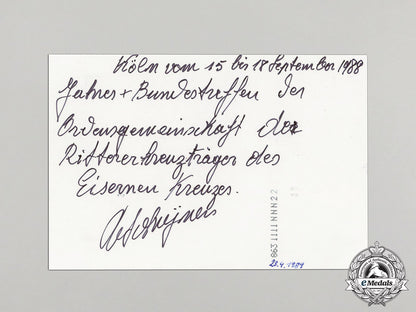 Köln vom 15 bis 18 September 1988
Jahres + Bundestreffen der
Ordensgemeinschaft der
Ritterkreuzträger des
Eisernen Kreuzes.
863 1111 NNN 22
eMedals